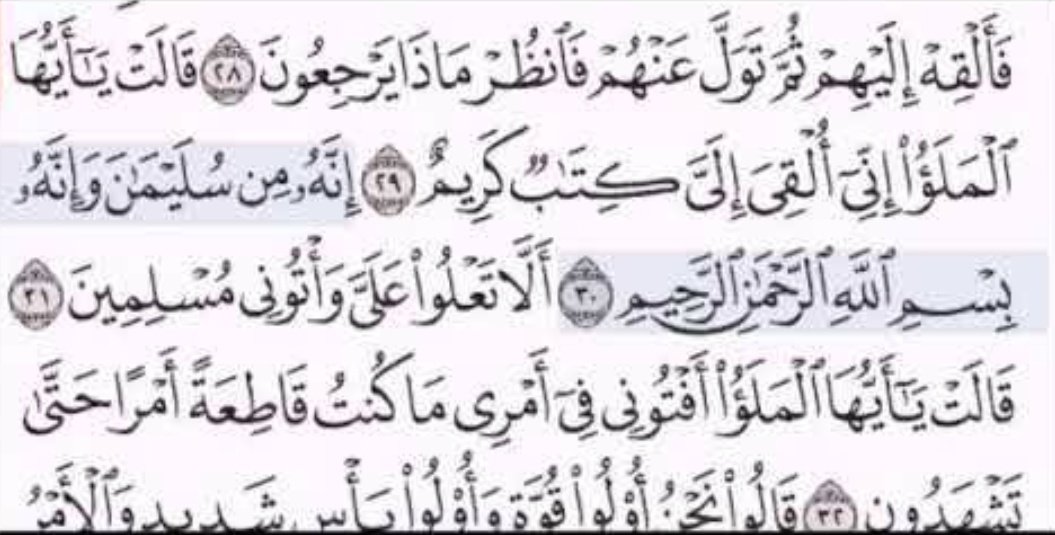 فَأَلْقِهْ إِلَيْهِمْ ثُمَّ تَوَلَّ عَنْهُمْ فَٱنظُرْ مَاذَا يَرْجِعُونَ ٢٨ قَالَتْ يَـٰٓأَيُّهَا
ٱلْمَلَؤُا۟ إِنِّىٓ أُلْقِىَ إِلَىَّ كِتَـٰبٌ كَرِيمٌ ٢٩ إِنَّهُۥ مِن سُلَيْمَـٰنَ وَإِنَّهُۥ
بِسْمِ ٱللَّهِ ٱلرَّحْمَـٰنِ ٱلرَّحِيمِ ٣٠ أَلَّا تَعْلُوا۟ عَلَىَّ وَأْتُونِى مُسْلِمِينَ ٣١
قَالَتْ يَـٰٓأَيُّهَا ٱلْمَلَؤُا۟ أَفْتُونِى فِىٓ أَمْرِى مَا كُنتُ قَاطِعَةً أَمْرًا حَتَّىٰ
تَشْهَدُونِ ٣٢ قَالُوا۟ نَحْنُ أُو۟لُوا۟ قُوَّةٍ وَأُو۟لُوا۟ بَأْسٍ شَدِيدٍ وَٱلْأَمْرُ